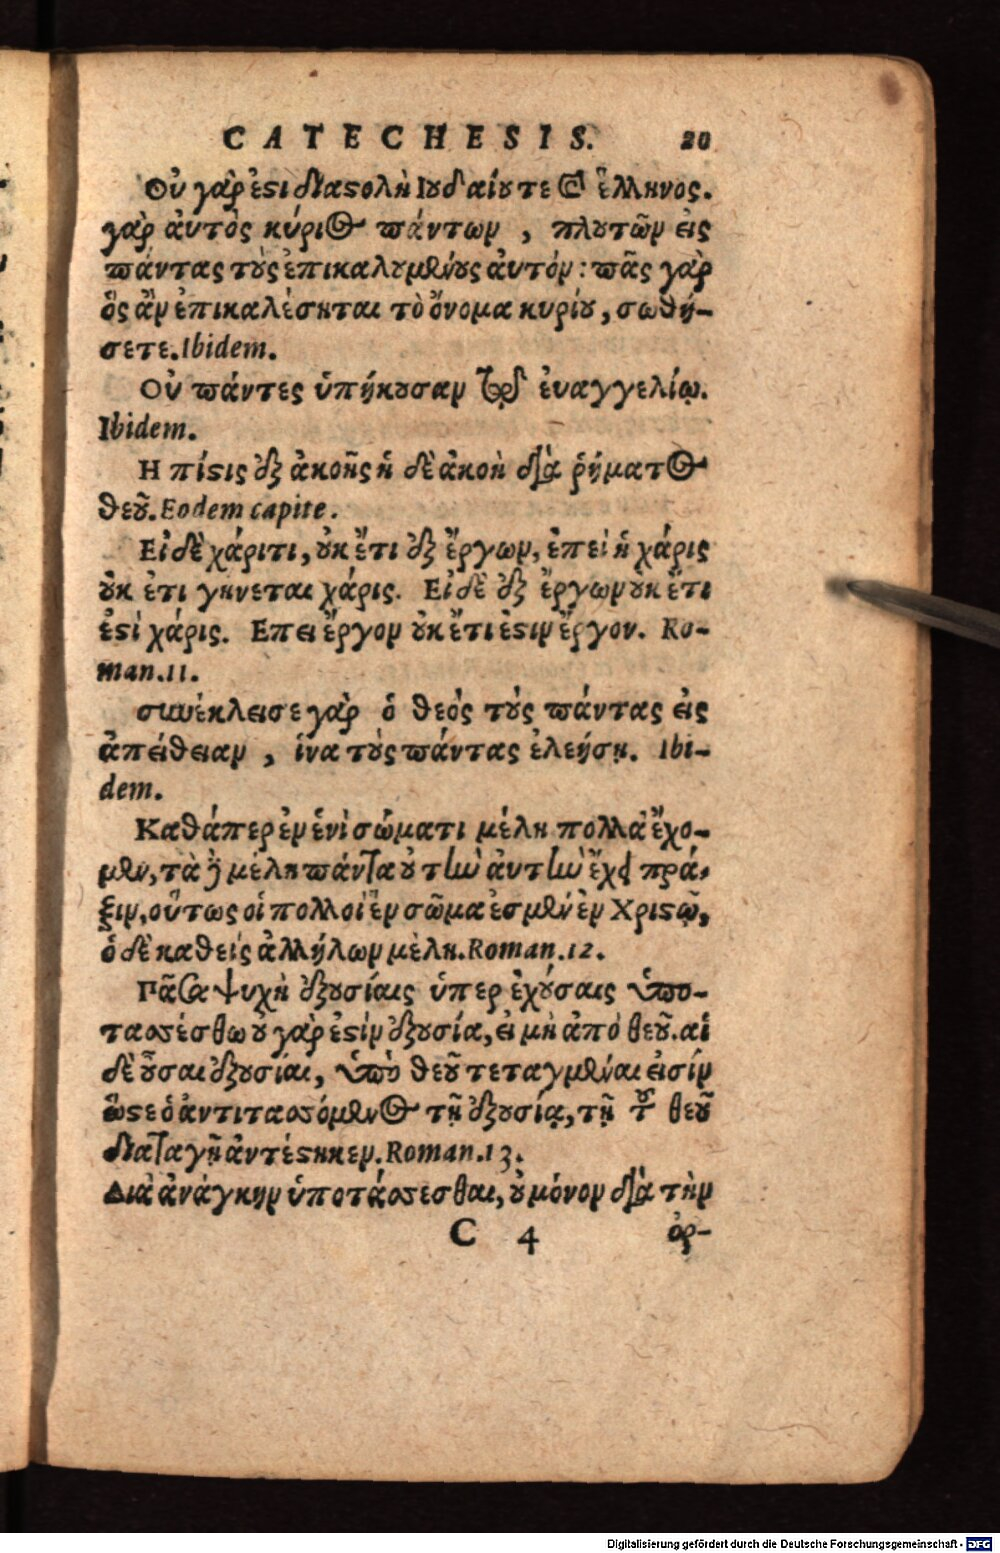 CATECHESIS. 20
Οὐ γὰρ ἐϛι διαϛολὴ Ιουδαίου τε καὶ ἕλληνος.
γὰρ ἀυτὸς κύριος πάντων, πλουτῶν εἰς
πάντας τοὺς ἐπικαλουμένους ἀυτόν: πᾶς γὰρ
ὃς ἂν ἐπικαλέσηται τὸ ὄνομα κυρίου, σωθή-
σετε. Ibidem.
Οὐ πάντες ὑπήκουσαν τῷ ἐυαγγελίῳ.
Ibidem.
Η πίϛις ἐξ ἀκοῆς ἡ δὲ ἀκοὴ διὰ ῥήματος
θεοῦ. Eodem capite.
Εἰ δὲ χάριτι, οὐκ ἔτι ἐξ ἔργων, ἐπεὶ ἡ χάρις
οὐκ ἐτι γηνεται χάρις. Εἰ δὲ ἐξ ἔργων οὐκ ἔτι
ἐϛὶ χάρις. Επει ἔργον οὐκ ἔτι ἐϛιν ἔργον. Ro-
man. 11.
συνέκλεισε γὰρ ὁ θεὸς τοὺς πάντας εἰς
ἀπείθειαν, ἱνα τοὺς πάντας ἐλεήσῃ. Ibi-
dem.
Καθάπερ ἐν ἑνὶ σώματι μέλη πολλὰ ἔχο-
μεν, τὰ δὲ μέλη πάντα οὐ τὴν ἀυτὴν ἔχει πρά-
ξιν, οὕτως οἱ πολλοὶ ἓν σῶμα ἐσμὲν ἐν Χριϛῷ,
ὁ δὲ καθεὶς ἀλλήλων μὲλη. Roman. 12.
Πᾶσα ψυχὴ ἐξουσίαις ὑπερ ἐχούσαις ὑπο-
τασσέσθω ου γὰρ ἐϛὶν ἐξουσία, εἰ μὴ ἀπὸ θεοῦ. αἱ
δὲ οὖσαι ἐξουσίαι, ὑπὸ θεοῦ τεταγμέναι εἰσίν
ὥϛε ὁ ἀντιτασσόμενος τῇ ἐξουσίᾳ, τῇ τοῦ θεοῦ
διαταγῇ ἀντέϛηκεν. Roman. 13.
Διὰ ἀνάγκην ὑποτάσσεσθαι, οὐ μόνον διὰ τὴν
C 4 ὀρ-
Digitalisierung gefördert durch die Deutsche Forschungsgemeinschaft - DFG